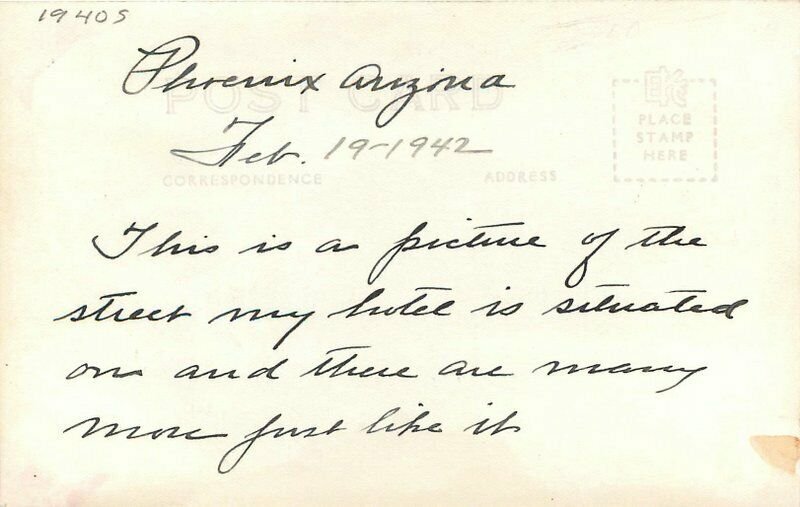 1940s
Phoenix Arizona
POST CARD
Feb. 19-1942
CORRESPONDENCE
ADDRESS
PLACE
STAMP
HERE
This is a picture of the
street my hotel is situated
on and there are many
more just like it